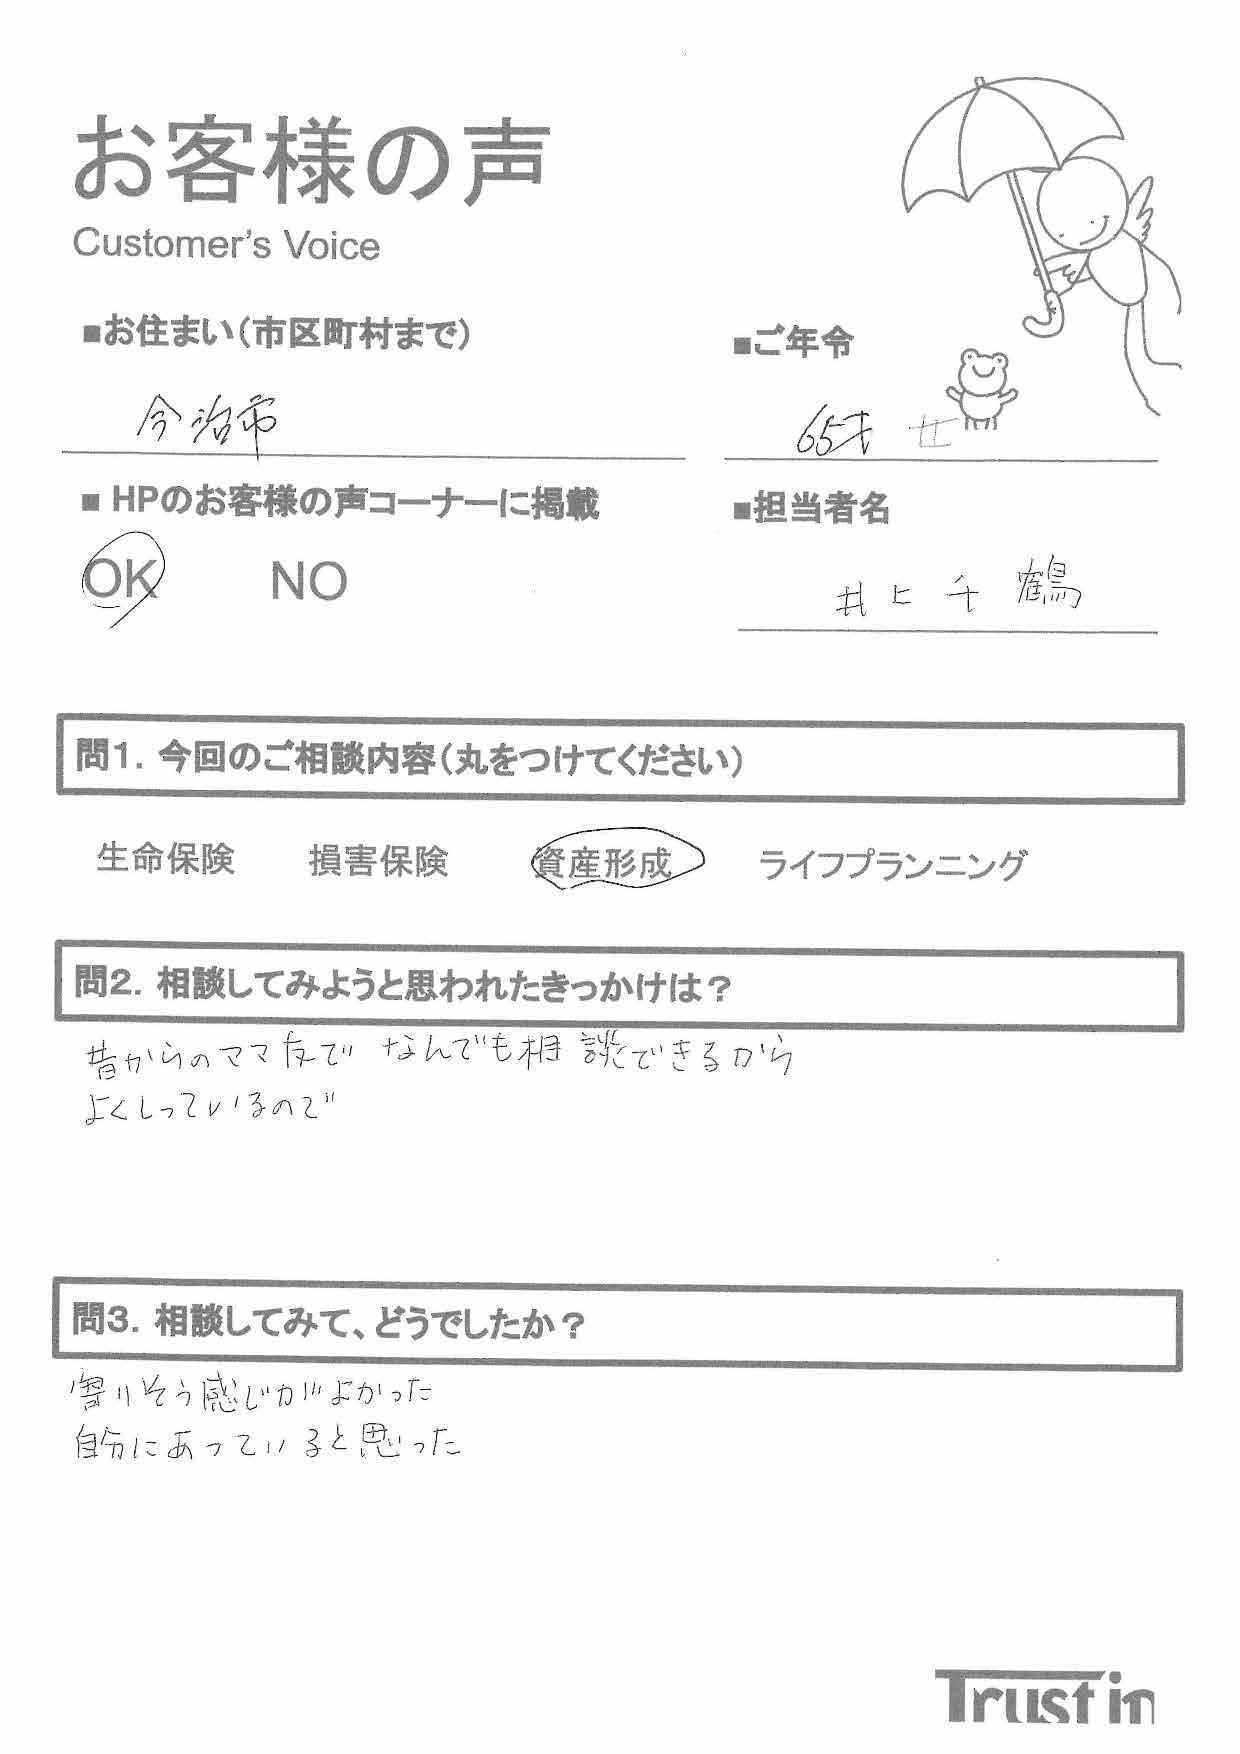 お客様の声
Customer's Voice
■お住まい(市区町村まで)
■ご年令
今治市
65才 女
■ HPのお客様の声コーナーに掲載
■担当者名
OK NO
井上千鶴
問1. 今回のご相談内容(丸をつけてください)
生命保険 損害保険 資産形成 ライフプランニング
問2. 相談してみようと思われたきっかけは?
昔からのママ友で なんでも相談できるから
よくしっているので
問3. 相談してみて、どうでしたか?
寄りそう感じがよかった
自分にあっていると思った
Trust in